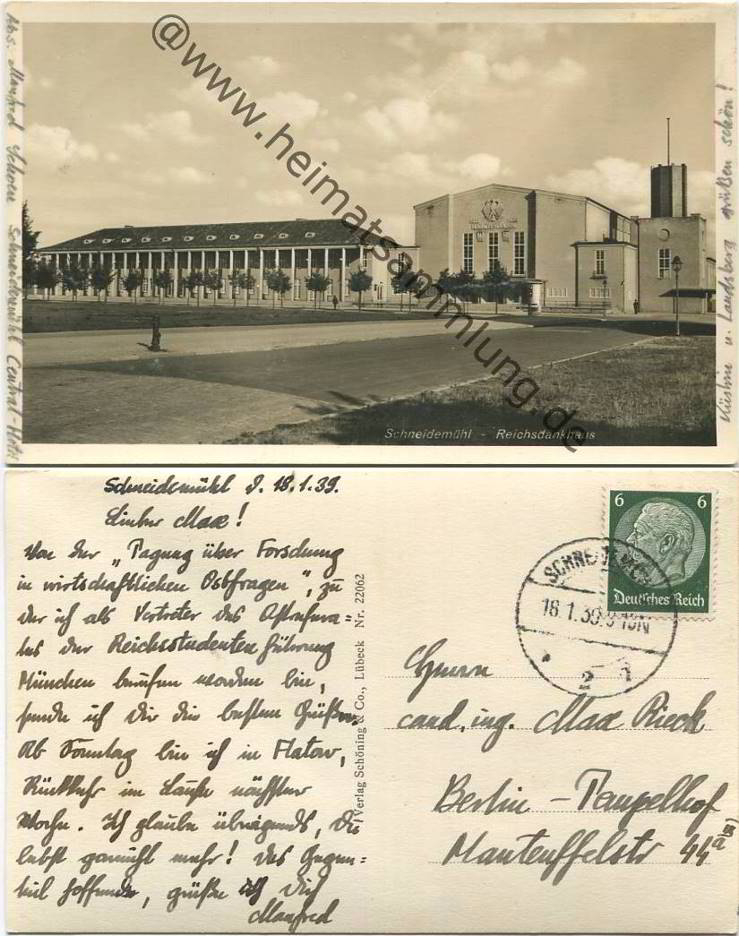 Abs. Manfred Schoen Schneidemühl Central-Hotel
@www.heimatsammlung.de
Küstrin u. Landsberg grüßen schön!
Schneidemühl - Reichsdankhaus
Schneidemühl d. 18.1.39.
Lieber Max!
Von der „Tagung über Forschung
in wirtschaftlichen Ostfragen", zu
der ich als Vertreter des
tes der Reichsstudentenführung
München berufen worden bin,
sende ich Dir die besten Grüße.
Ab Sonntag bin ich in Flatow,
Rückkehr im Laufe nächster
Woche. Ich glaube übrigends, Du
lebst garnicht mehr! Das Gegen=
teil hoffend, grüße ich Dich
Manfred
Verlag Schöning & Co., Lübeck Nr. 22062
6 6
Deutsches Reich
18.1.39.
Herrn
cand. ing. Max Rieck
Berlin - Tempelhof
Manteuffelstr 44a